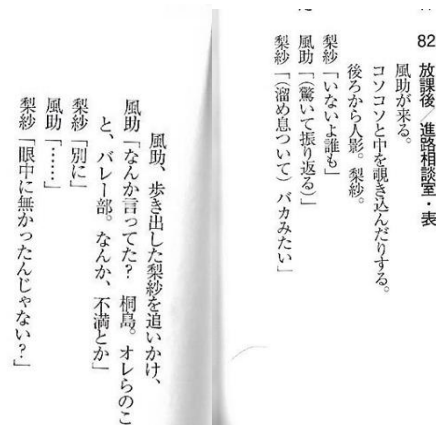 82 放課後／進路相談室・表
風助が来る。
コソコソと中を覗き込んだりする。
後ろから人影。梨紗。
梨紗「いないよ誰も」
風助「(驚いて振り返る)」
梨紗「(溜め息ついて)バカみたい」
風助、歩き出した梨紗を追いかけ、
風助「なんか言ってた？　桐島。オレらのこ
と、バレー部。なんか、不満とか」
梨紗「別に」
風助「……」
梨紗「眼中に無かったんじゃない？」